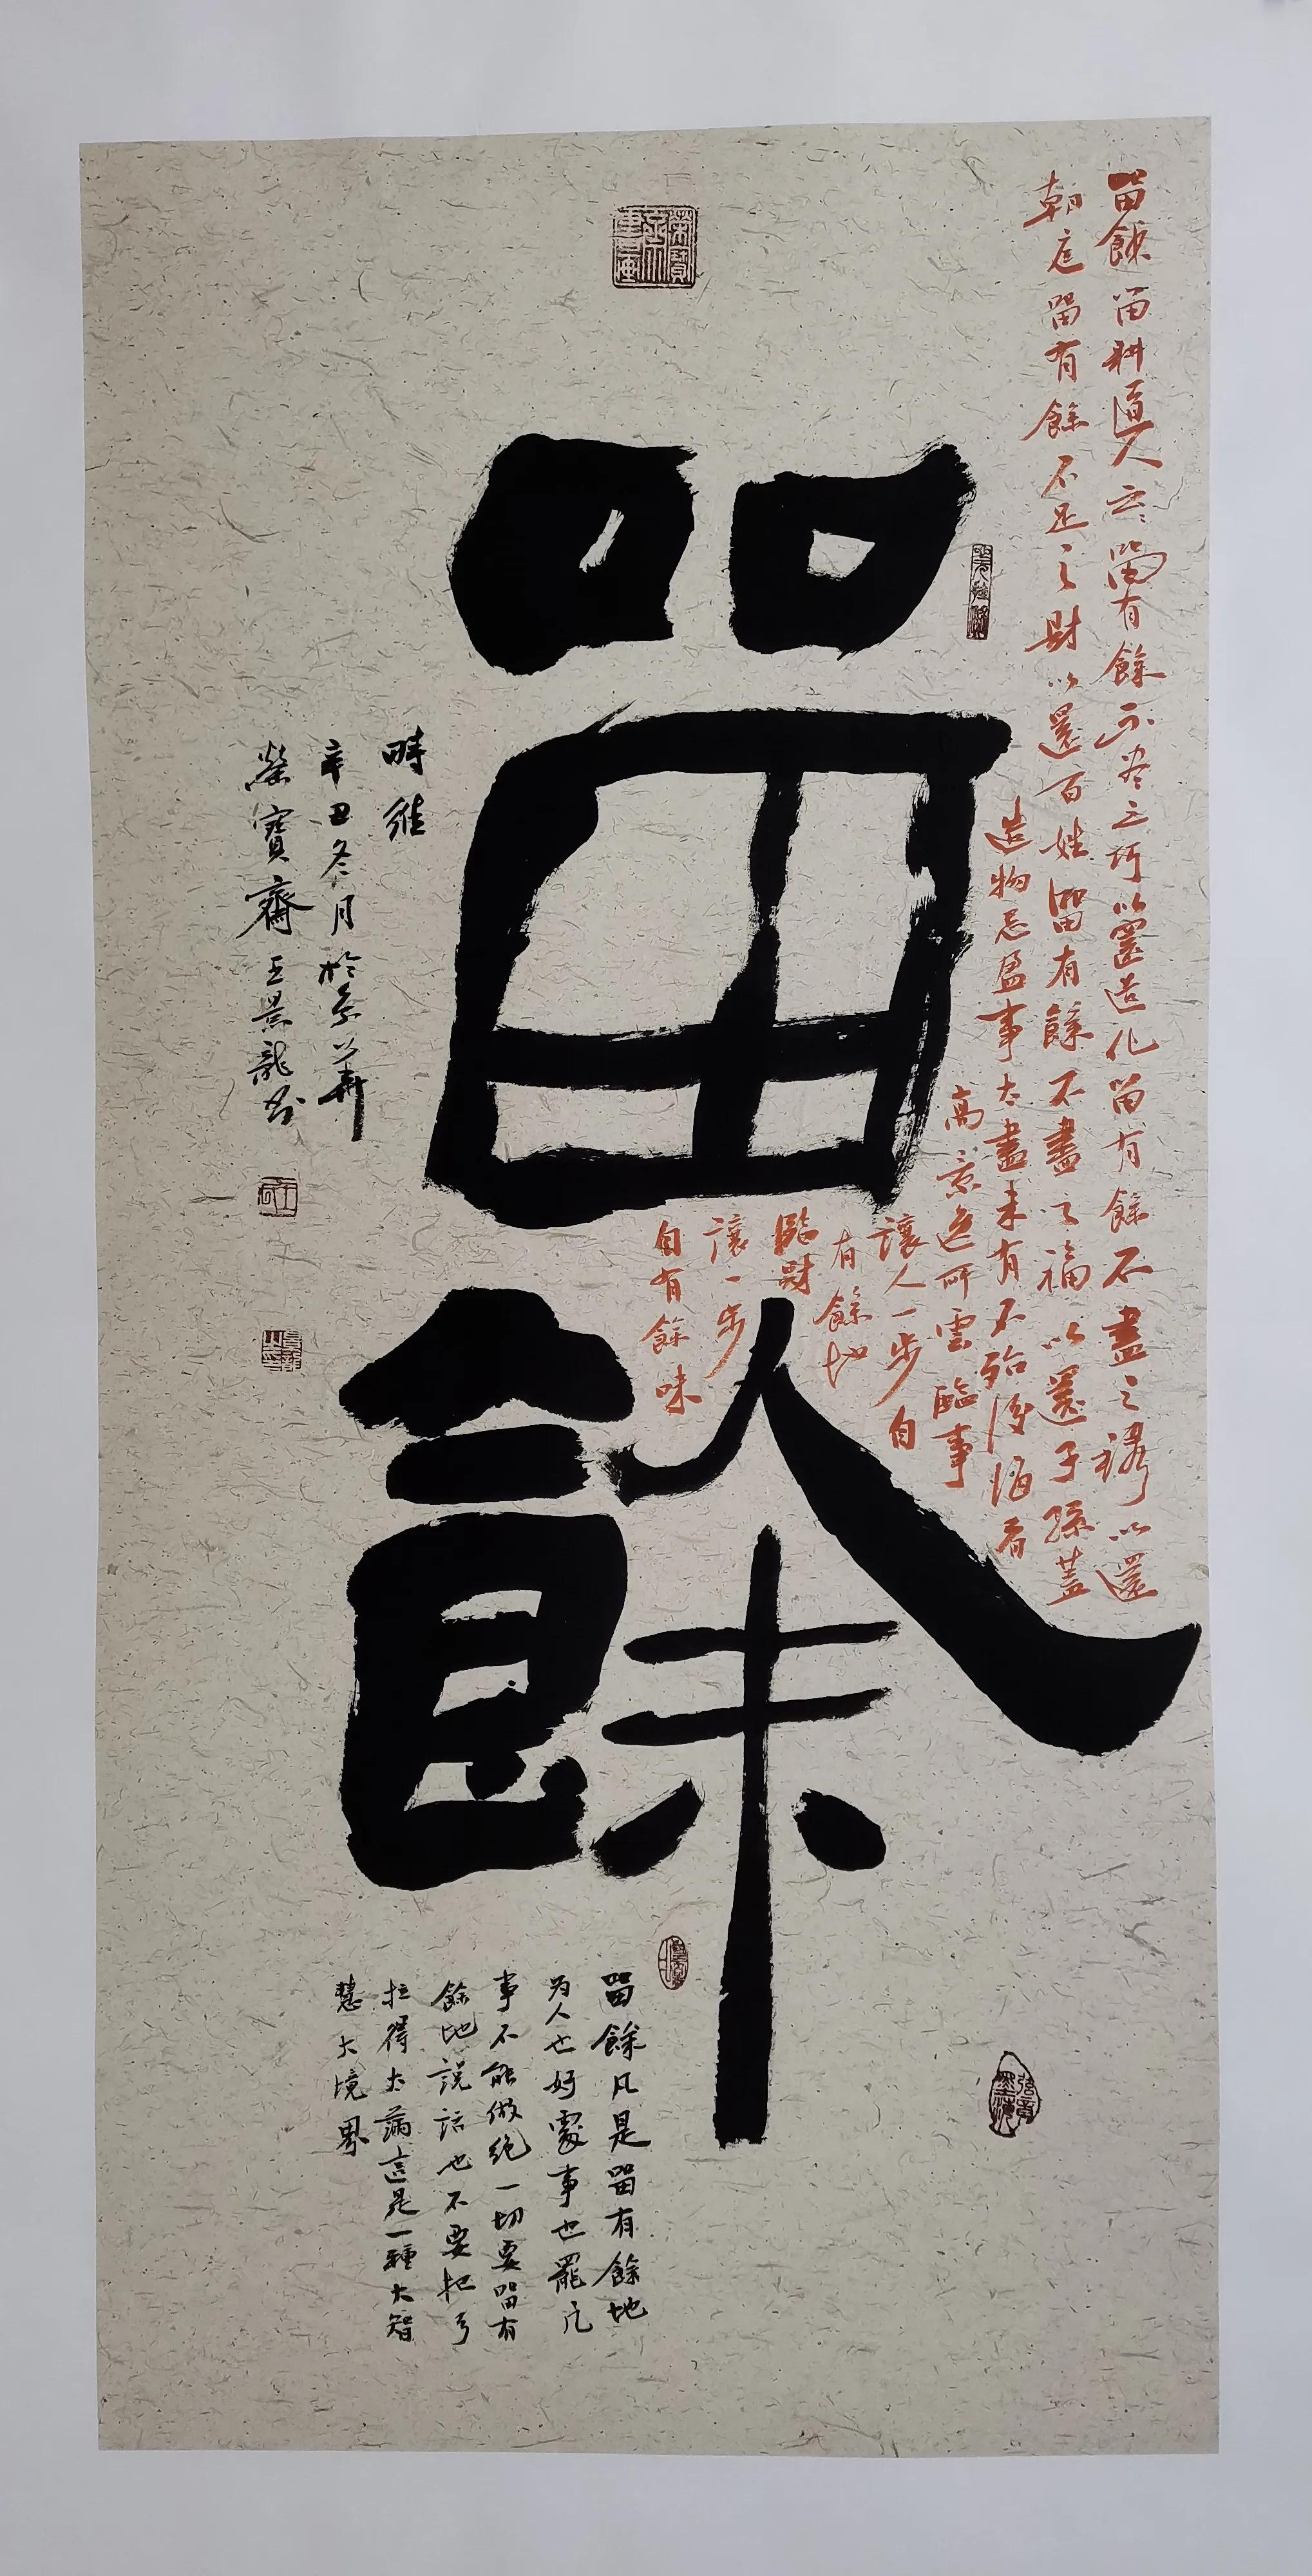 留餘
留餘 留耕道人云 留有餘不尽之巧以還造化留有餘不盡之禄以還
朝庭留有餘不足之財以還百姓留有餘不盡之福以還子孫蓋
造物忌盈事太盡未有不殆後悔者
高景逸所雲臨事
讓人一步自
有餘地
臨財
讓一步
自有餘味
時維
辛丑冬月於京華
榮寶齋王景龍書
留餘凡是留有餘地
为人也好處事也罷凡
事不能做绝一切要留有
餘地説話也不要把弓
拉得太滿這是一種大智
慧大境界